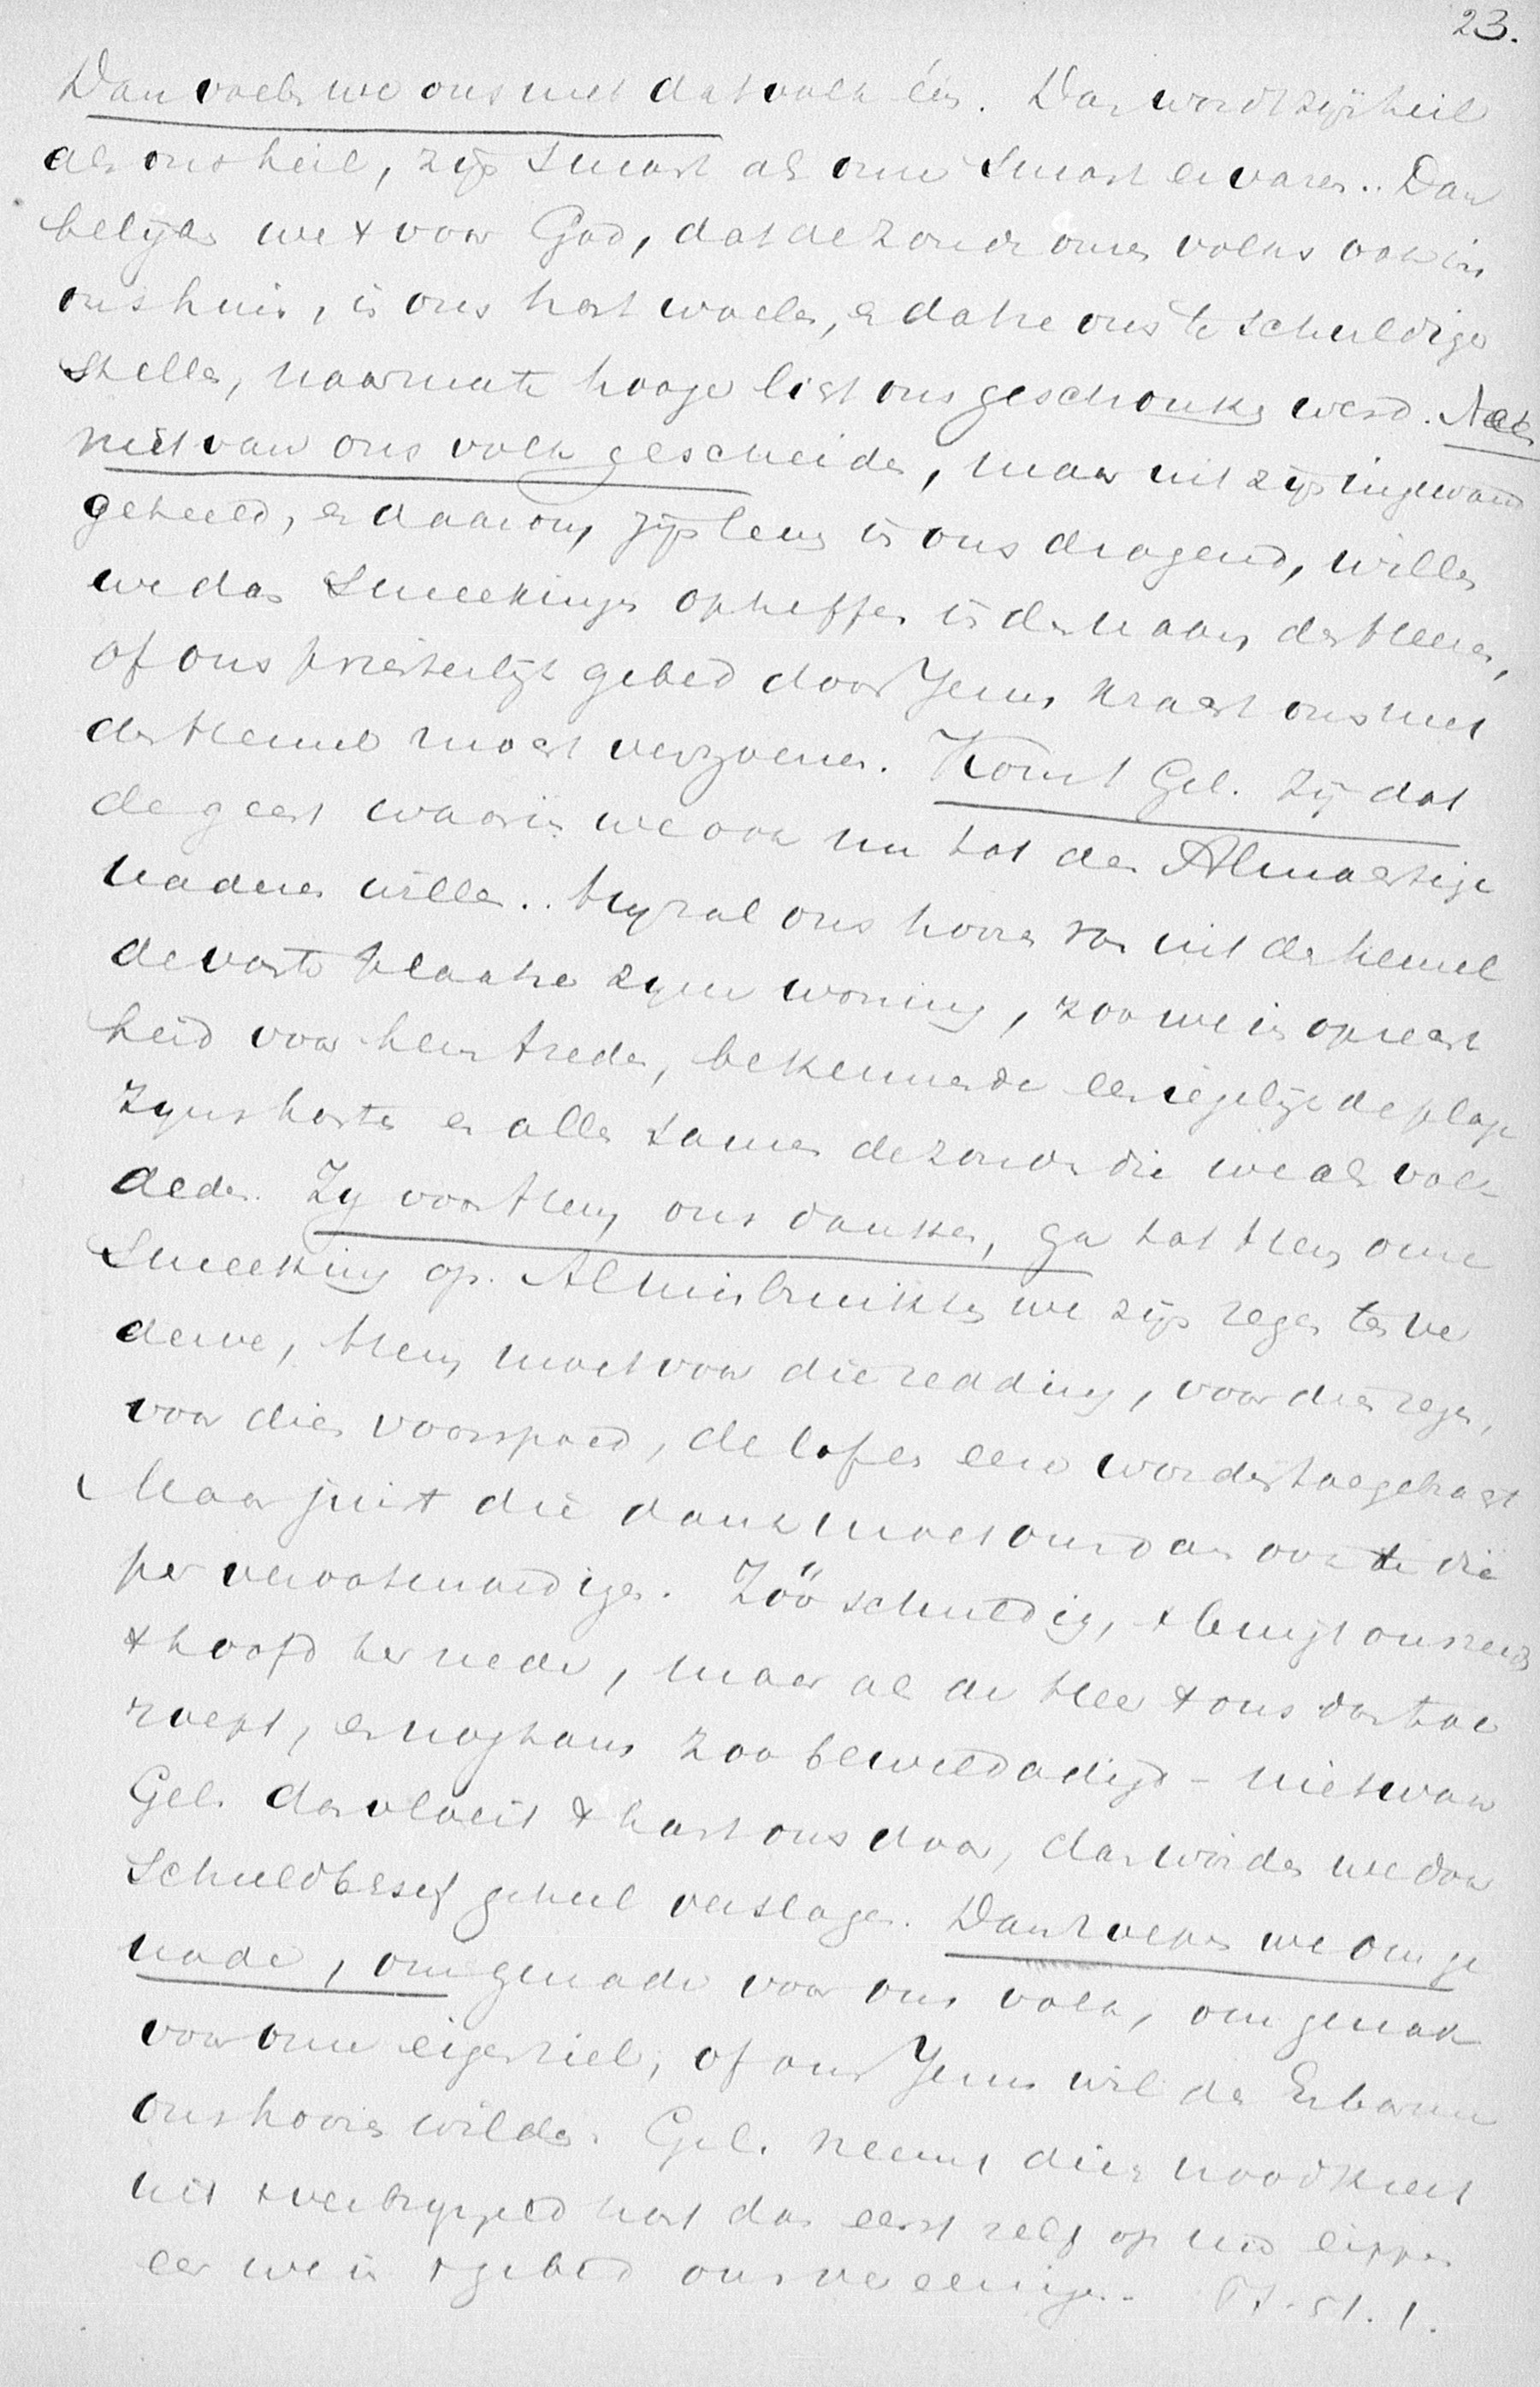 23.
Dan voelen we ons met dat volk één. Dan wordt zijn heil
als ons heil, zijn smart als onze smart ervaren.. Dan
belijden we 't voor God, dat de zonden onzes volks ook in
ons huis, in ons hart woelen, en dat ze ons te schuldiger
stellen, naarmate hooger licht ons geschonken werd. Neen
niet van ons volk gescheiden, maar uit zijn ingewand
geteeld, en daarom zijn leven in ons dragend, willen
we dan smeekingen opheffen in den naam des Heeren,
of ons priesterlijk gebed door Jezus kracht ons met
den Hemel mocht verzoenen. Komt Gel. zij dat
de geest waarin we ook nu tot den Almachtige
naderen willen.. Hij zal ons hooren van uit den hemel
de vaste plaatse zijner woning, zoo we in oprecht
heid voor hem treden, bekennende een iegelijk de plage
zijns harten en allen samen de zonden die we als volk
deden. Zij voor Hem ons danken, ga tot Hem onze
smeeking op. Al misbruikten we zijn zegen ten ver
derve, Hem moet voor die redding, voor dien zegen,
voor dien voorspoed, de lof en eere worden toegebracht
Maar juist die dank moet ons dan ook te die
per verootmoedigen. Zóó schuldig, 't buigt ons reeds
't hoofd ter neder, maar als de Heer 't ons dan toe
roept, en nogtans zoo beweldadigd – niet waar
Gel. dan vloeit 't hart ons door, dan worden we door
schuldbesef geheel verslagen. Dan roepen we om ge
nade, om genade voor ons volk, om genade
voor onze eigen ziel, of om Jezus wil de Erbarmer
ons hooren wilde. Gel. neemt dien noodkreet
uit 't verbrijzeld hart dan eerst zelf op uw lippen
eer we in 't gebed ons vereenigen. – Ps. 51. 1.